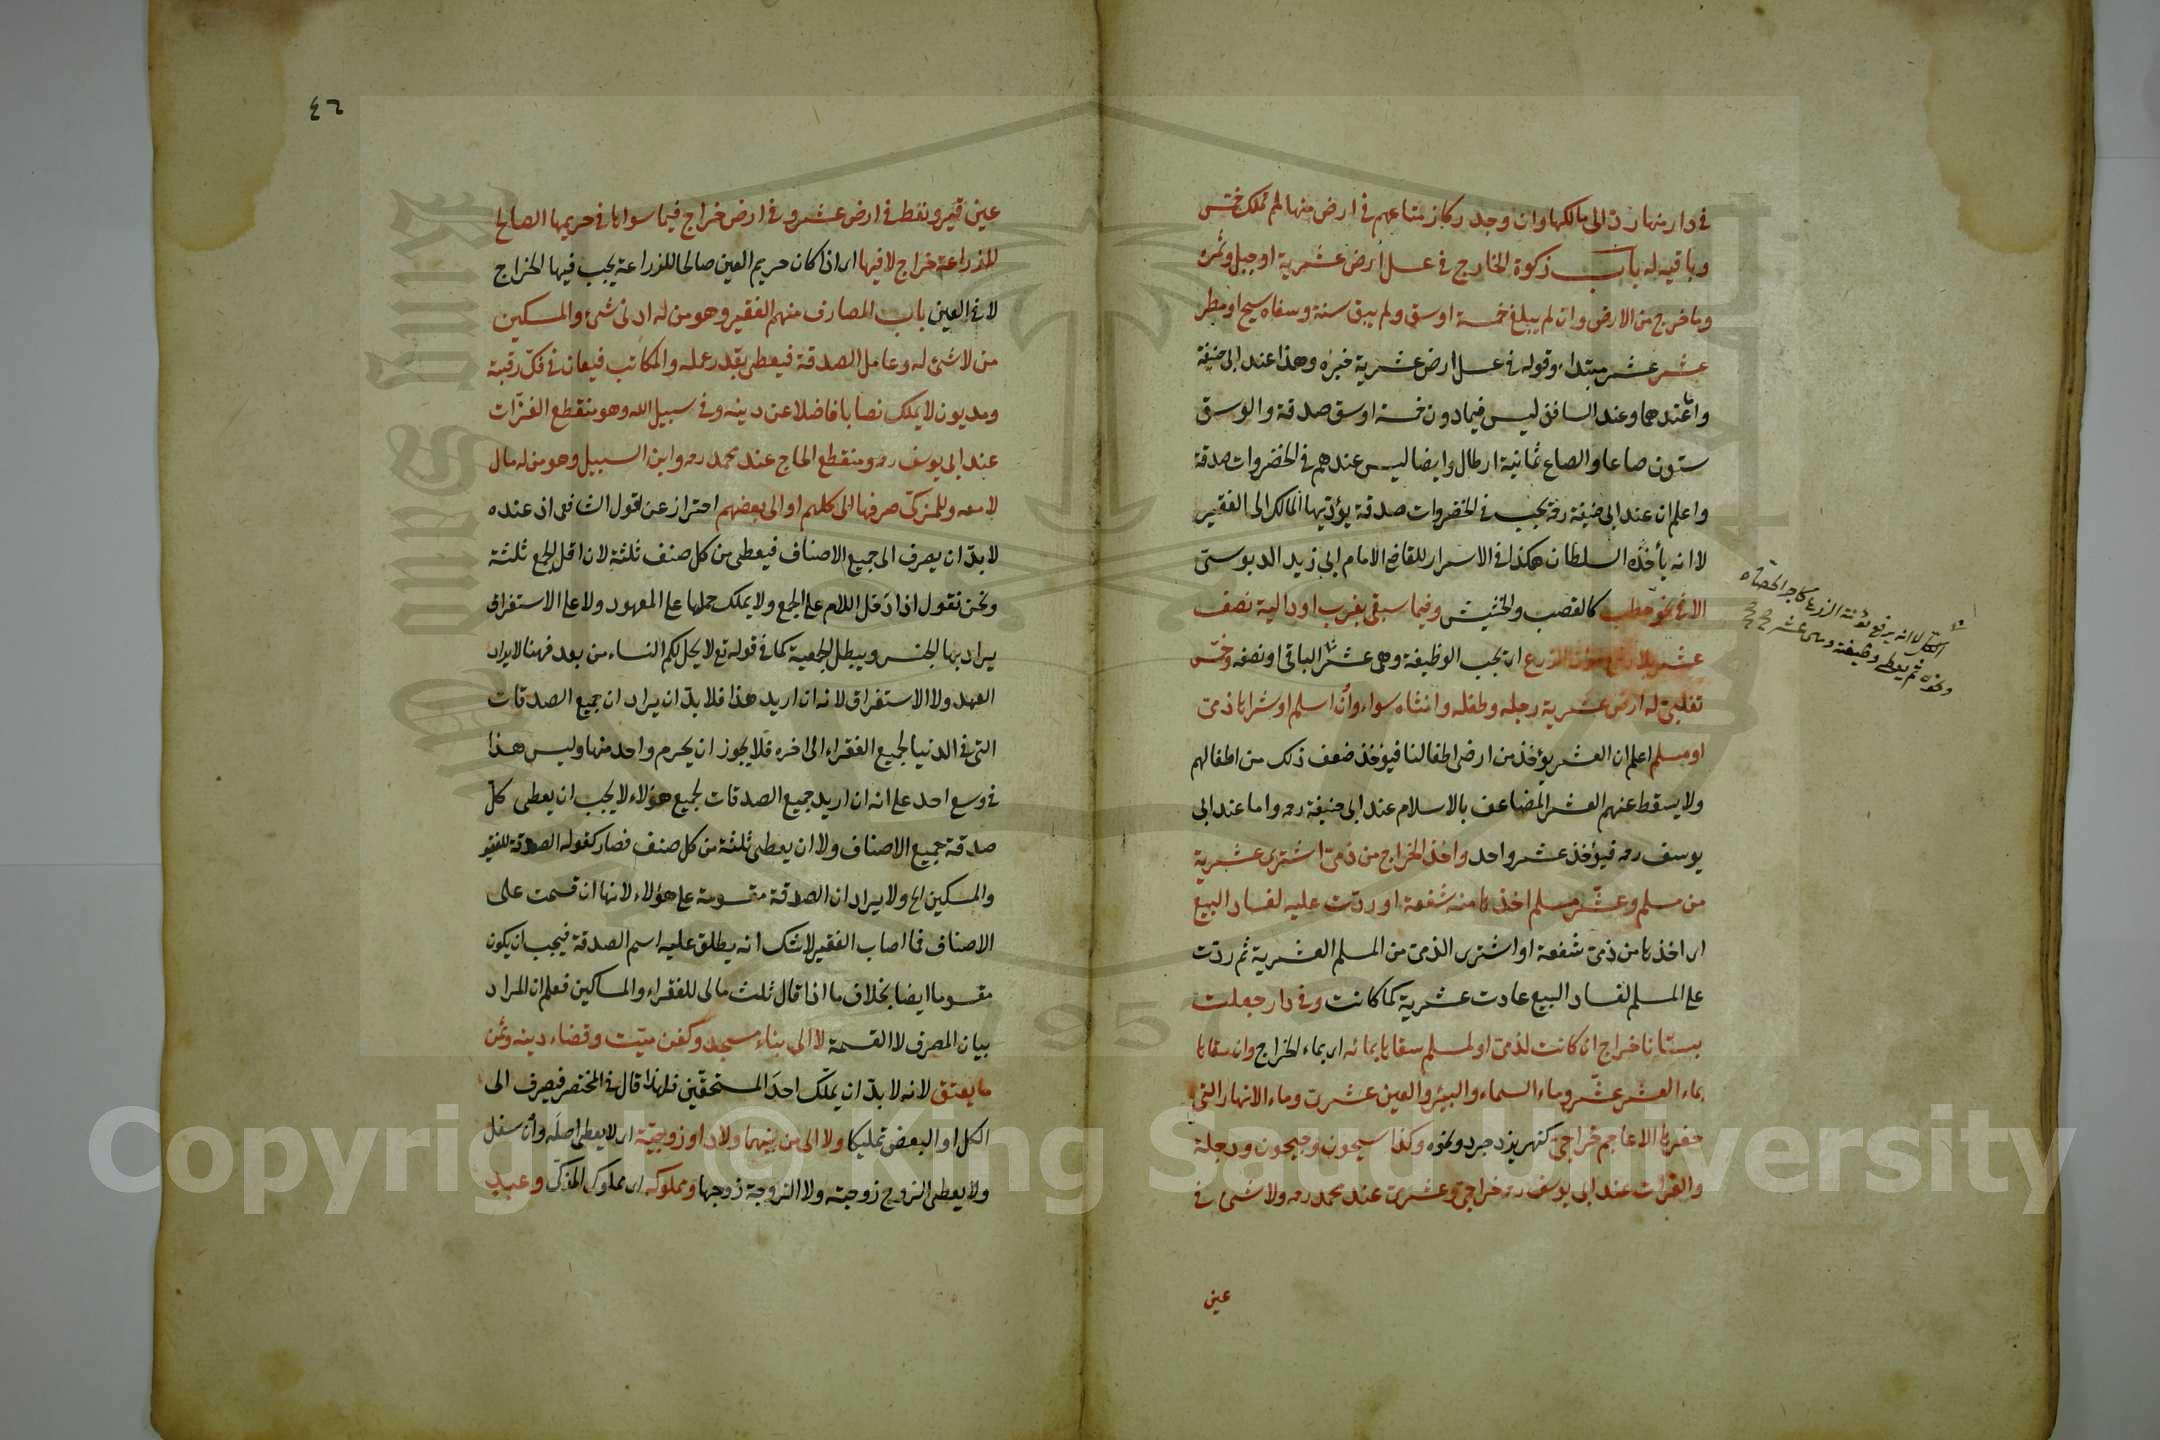 في دار منها رد الى مالكها وان وجد ركاز متاعهم في ارض منها لم تملك خمس
وباقيه له باب زكوة الخارج في عسل ارض عشرية او جبل وثمره
وما خرج من الارض وان لم يبلغ خمسة اوسق ولم يبق سنة وسقاه سيح او مطر
عشر عشر مبتداء وقوله في عسل ارض عشرية خبره وهذا عند ابى حنيفة
واما عندهما وعند الشافعى ليس فيما دون خمسة اوسق صدقة والوسق
ستون صاعا والصاع ثمانية ارطال وايضا ليس عندهم في الخضروات صدقة
واعلم ان عند ابى حنيفة رحه تجب في الخضروات صدقة يؤديها المالك الى الفقير
لا انه يأخذه السلطان هكذا في الاسرار للقاضى الامام ابى زيد الدبوسى
الا في نحو حطب كالقصب والحشيش وفيما سقى بغرب او دالية نصف
عشر بلا رفع مؤن الزرع اى تجب الوظيفة وهى عشر الباقى او نصفه وخمس
تغلبى له ارض عشرية رجله وطفله وانثاه سواء وان اسلم او شراها ذمى
او مسلم اعلم ان العشر يؤخذ من ارض اطفالنا فيؤخذ ضعف ذلك من اطفالهم
ولا يسقط عنهم العشر المضاعف بالاسلام عند ابى حنيفة رحه واما عند ابى
يوسف رحه فيؤخذ عشر واحد واخذ الخراج من ذمى اشترى عشرية
من مسلم وعشر مسلم اخذها منه شفعة او ردت عليه لفساد البيع
اى اخذها من ذمى شفعة او اشترى الذمى من المسلم العشرية ثم ردت
على المسلم لفساد البيع عادت عشرية كما كانت وفي دار جعلت
بستانا خراج ان كانت لذمى او لمسلم سقاها بمائه اى بماء الخراج وان سقاها
بماء العشر عشر وماء السماء والبئر والعين عشرى وماء الانهار التى
حفرها الاعاجم خراجى كنهر يزدجرد ونحوه وكذا سيحون وجيحون ودجلة
والفرات عند ابى يوسف رحه خراجى وعشرى عند محمد رحه ولا شئ في
عين
٤٦
عين قير ونفط في ارض عشر وفي ارض خراج فيما سواها في حريمها الصالح
للزراعة خراج لا فيها اى اذا كان حريم العين صالحا للزراعة يجب فيها الخراج
لا في العين باب المصارف منهم الفقير وهو من له ادنى شئ والمسكين
من لا شئ له وعامل الصدقة فيعطى بقدر عمله والمكاتب فيعان في فك رقبة
ومديون لا يملك نصابا فاضلا عن دينه وفى سبيل الله وهو منقطع الغزات
عند ابى يوسف رحه ومنقطع الحاج عند محمد رحه وابن السبيل وهو من له مال
لا معه وللمزكى صرفها الى كلهم او الى بعضهم احتراز عن قول الشافعى اذ عنده
لا بد ان يصرف الى جميع الاصناف فيعطى من كل صنف ثلثة لان اقل الجمع ثلثة
ونحن نقول اذا دخل اللام على الجمع ولا يمكن حملها على المعهود ولا على الاستغراق
يراد بها الجنس ويبطل الجمعية كما في قوله تع لا يحل لكم النساء من بعد فهنا لا يراد
العهد ولا الاستغراق لانه ان اريد هذا فلا بد ان يراد ان جميع الصدقات
التى في الدنيا لجميع الفقراء الى اخره فلا يجوز ان يحرم واحد منها وليس هذا
في وسع احد على انه ان اريد جميع الصدقات لجميع هؤلاء لا يجب ان يعطى كل
صدقة جميع الاصناف ولا ان يعطى ثلثة من كل صنف فصار كقوله الصدقة للفقير
والمسكين الخ ولا يراد ان الصدقة مقسومة على هؤلاء لانها ان قسمت على
الاصناف فما اصاب الفقير لا شك انه يطلق عليه اسم الصدقة فيجب ان يكون
مقسوما ايضا بخلاف ما اذا قال ثلث مالى للفقراء والمساكين فعلم ان المراد
بيان المصرف لا القسمة لا الى بناء مسجد وكفن ميت وقضاء دينه وثمن
ما يعتق لانه لا بد ان يملك احد المستحقين فلهذا قال في المختصر فيصرف الى
الكل او البعض تمليكا ولا الى من بينهما ولاد او زوجية اى لا يعطى اصله وان سفل
ولا يعطى الزوج زوجته ولا الزوجة زوجها ومملوكه اى مملوك المزكى وعبد
Copyright © King Saud University